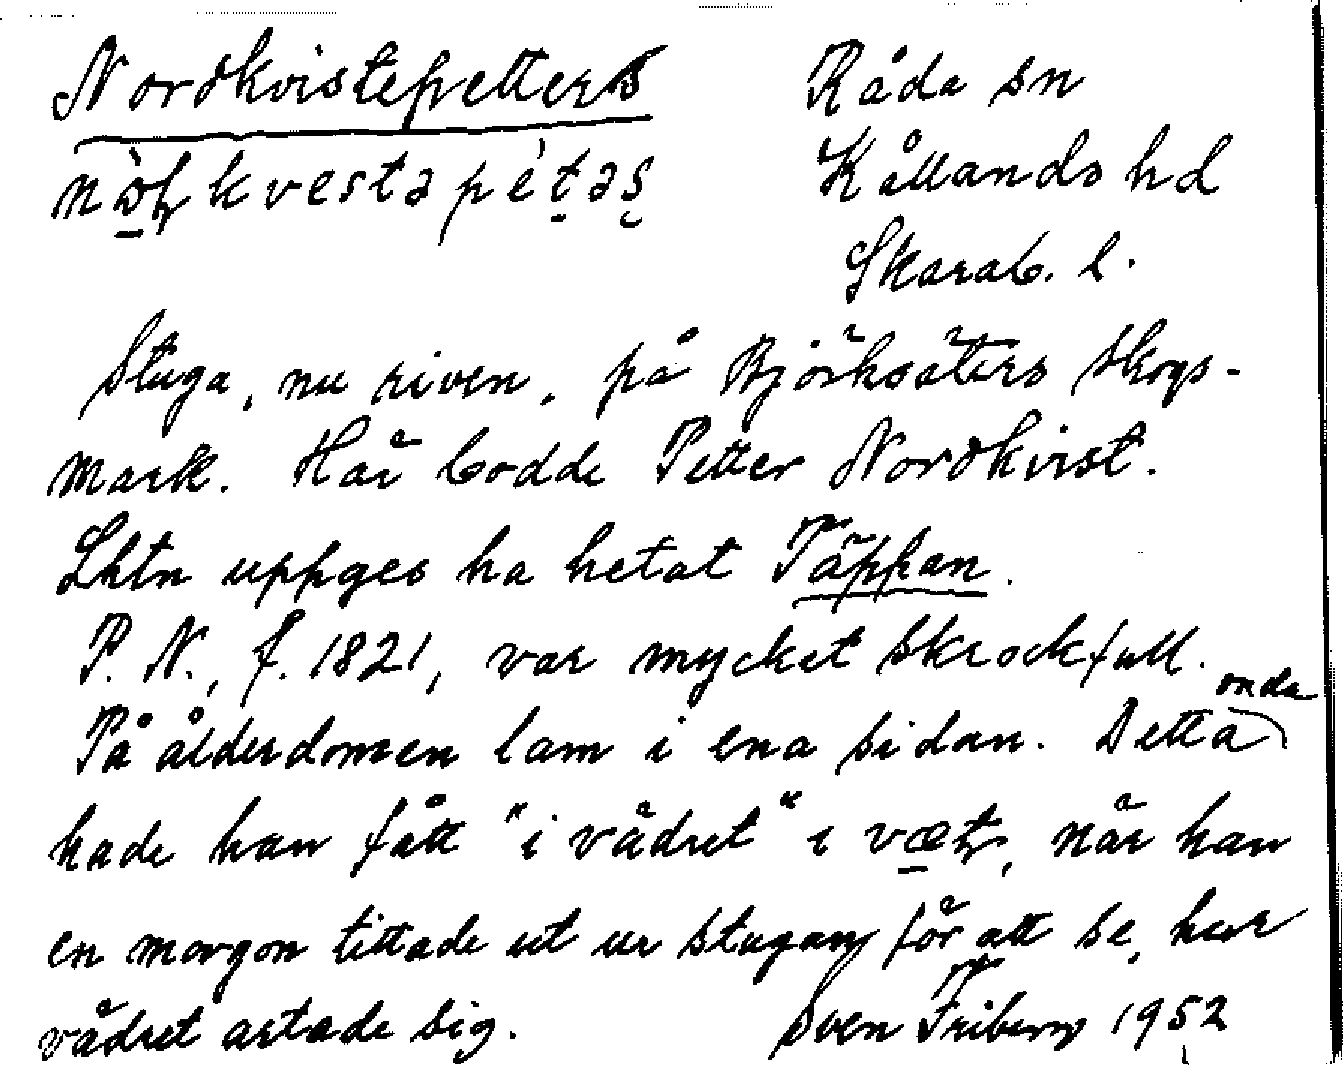 Nordkvistepetters
Råda sn
Kållands hd
Skarab. l.
Stuga, nu riven, på Björksäters skogs-
mark. Här bodde Petter Nordkvist.
Lhtn uppges ha hetat Täppan.
P. N., f. 1821, var mycket skrockfull.
På ålderdomen lam i ena sidan. Detta onda
hade han fått "i vädret" i væt, när han
en morgon tittade ut ur stugan för att se, hur
vädret artade sig.
Sven Friberg 1952